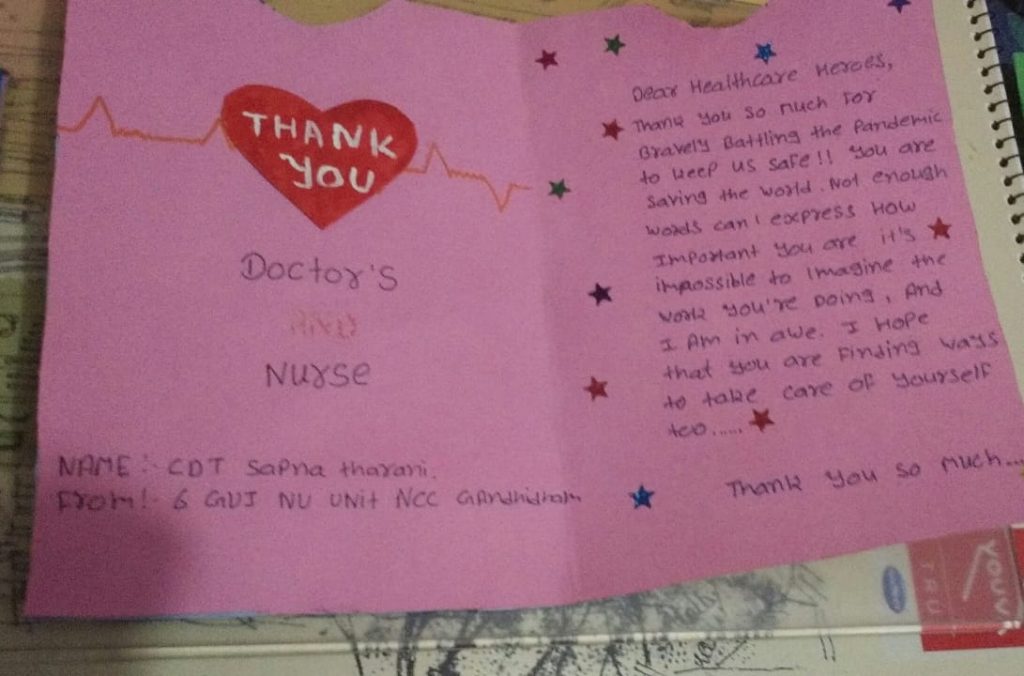 THANK
YOU
Doctor's
AND
Nurse
NAME :- CDT Sapna tharani.
From!- 6 GUJ NU UNit NCC GAndhidham
Dear Healthcare Heroes,
Thank you so much For
Bravely Battling the Pandemic
to keep us safe!! You are
saving the world. Not enough
words can' express How
Important you are it's
impossible to Imagine the
work you're Doing, And
I Am in awe. I Hope
that you are Finding ways
to take care of yourself
too.....
Thank you so much....
YOUVA
TRU